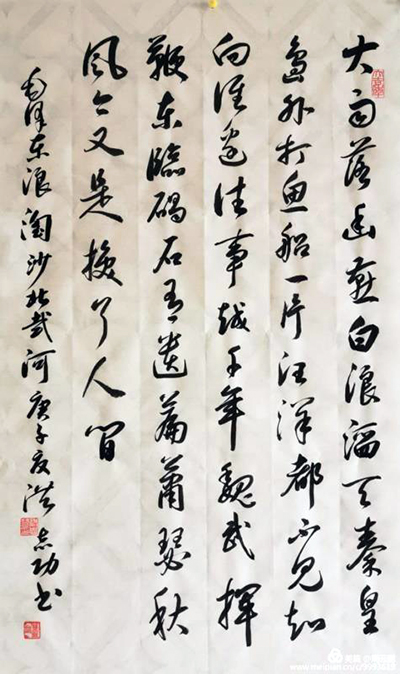 大雨落幽燕白浪滔天秦皇
島外打鱼船一片汪洋都不见知
向谁边往事越千年魏武揮
鞭东臨碣石有遗篇萧瑟秋
风今又是换了人间
毛泽东浪淘沙北戴河庚子夏洪志功书